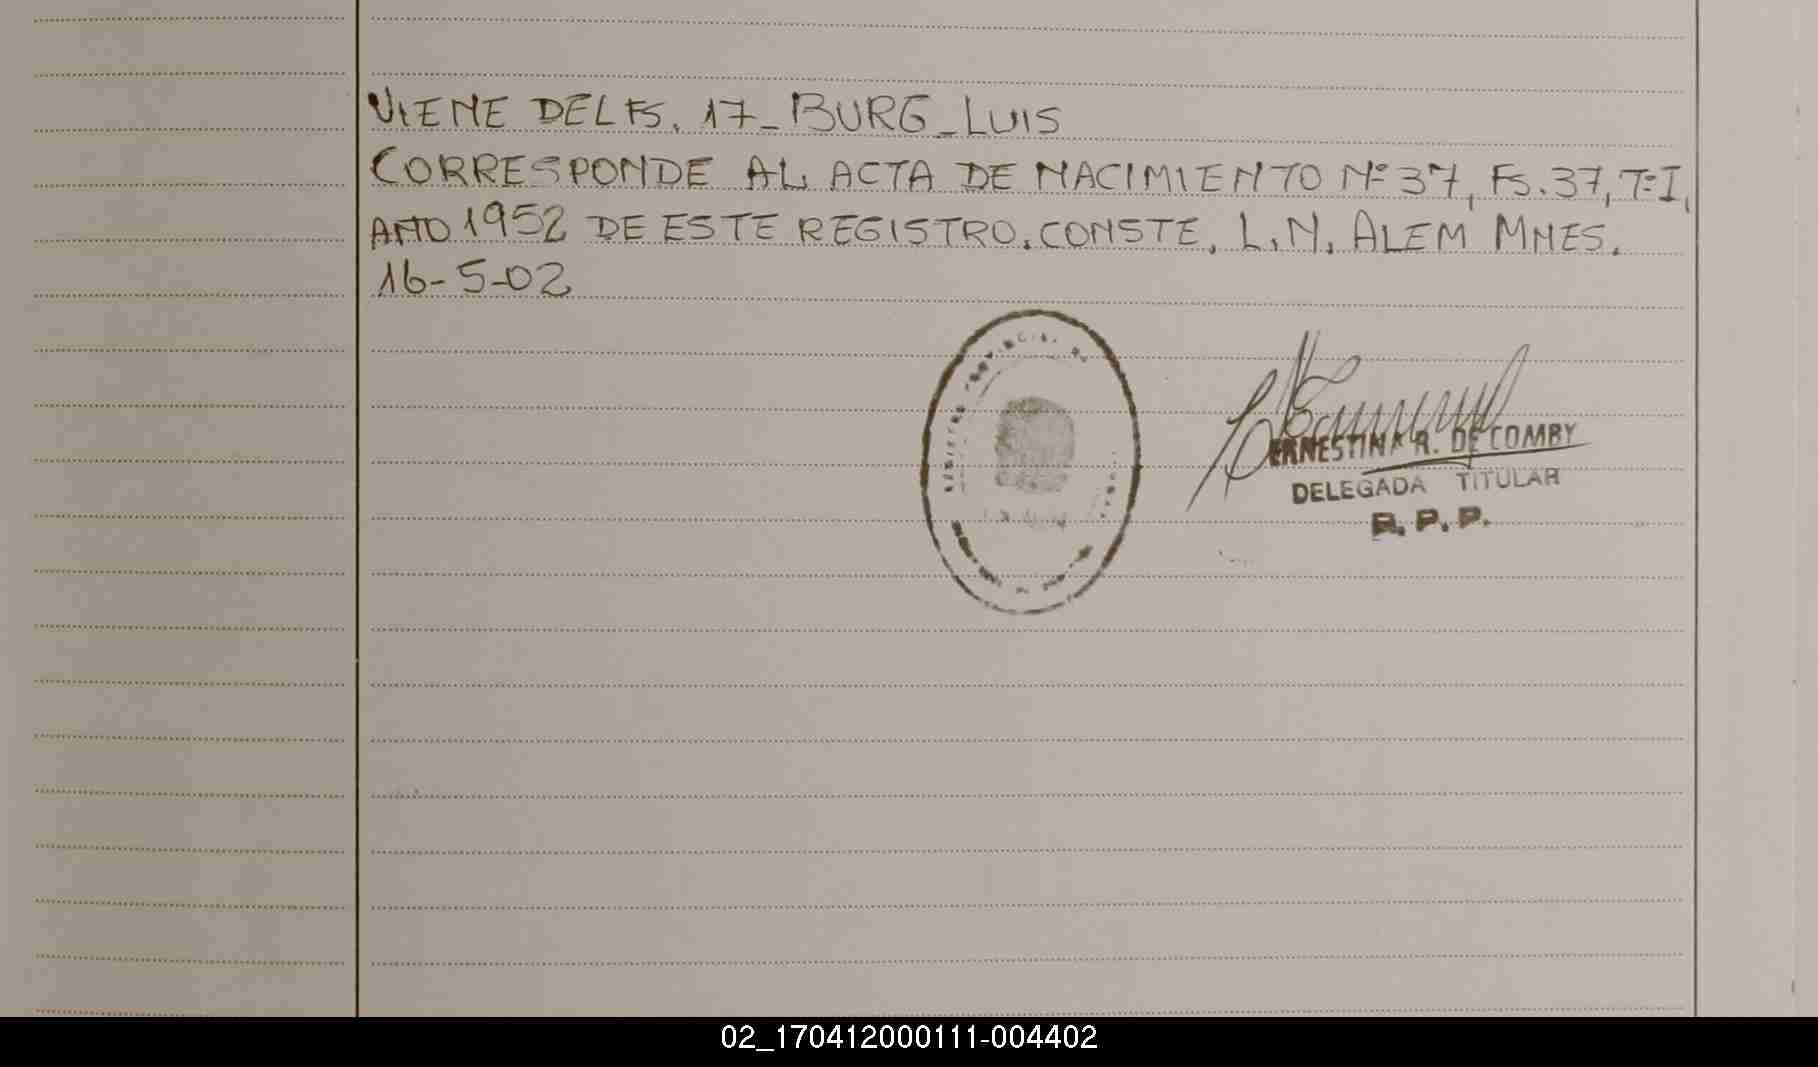 VIENE DEL FS. 17_ BURG_LUIS
CORRESPONDE AL ACTA DE NACIMIENTO Nº 37, FS. 37, Tº I,
AÑO 1952 DE ESTE REGISTRO. CONSTE. L. N. ALEM MNES.
16-5-02
REGISTRO PROVINCIAL DE
ERNESTINA R. DE COMBY
DELEGADA TITULAR
R. P. P.
02_170412000111-004402